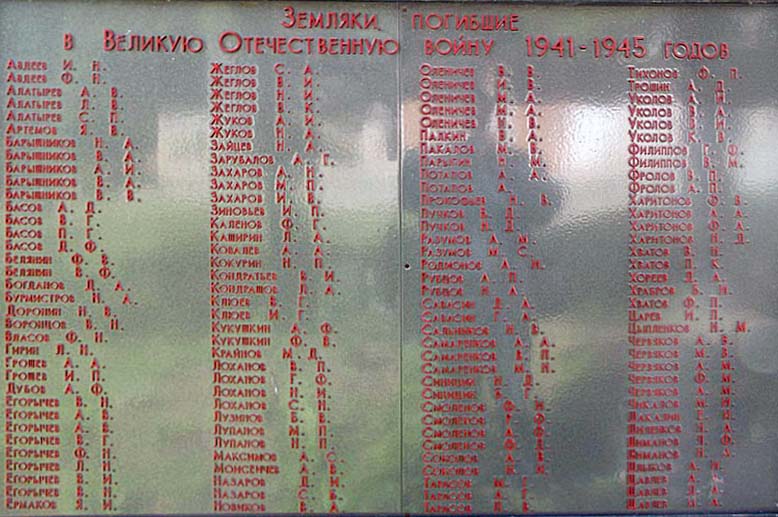 Земляки, погибшие
в Великую Отечественную войну 1941-1945 годов
Авдеев И. Н.
Авдеев Ф. Н.
Алатырев А. В.
Алатырев Л. В.
Алатырев С. П.
Артемов Я. В.
Барышников Н. А.
Барышников В. А.
Барышников А. И.
Барышников В. А.
Барышников В. В.
Басов А. Д.
Басов В. Г.
Басов П. Г.
Басов Д. Ф.
Белянин Ф. В.
Белянин В. Ф.
Богданов Д. А.
Бурмистров Н. А.
Доронин Н. В.
Воронцов В. Н.
Власов Ф. Н.
Гирин Л. Н.
Грошев А. А.
Грошев И. П.
Дубов А. Ф.
Егорычев В. Н.
Егорычев А. В.
Егорычев А. В.
Егорычев В. Г.
Егорычев Ф. Н.
Егорычев Л. И.
Егорычев В. И.
Егорычев И. В.
Ермаков Я. И.
Жеглов С. А.
Жеглов В. И.
Жеглов Н. И.
Жеглов Н. Н.
Жуков А. И.
Жуков Н. А.
Зайцев Н. А.
Зарубалов А. Г.
Захаров А. Н.
Захаров М. П.
Захаров И. В.
Зиновьев И. П.
Каленов Ф. Г.
Каширин Л. А.
Ковалев А. А.
Кокурин Н. П.
Кондратьев В. И.
Кондрашов Л. А.
Клюев В. Г.
Клюев И. Г.
Кукушкин А. Ф.
Кукушкин Ф. В.
Крайнов М. Д.
Лоханов В. П.
Лоханов Г. Ф.
Лоханов Н. И.
Лоханов С. Н.
Лузинов Б. В.
Лупанов М. П.
Лупанов Н. П.
Максимов А. С.
Моисеичев А. В.
Назаров Д. И.
Назаров С. Б.
Новиков В. А.
Оленичев В. В.
Оленичев И. В.
Оленичев М. А.
Оленичев М. А.
Оленичев Н. В.
Палкин В. А.
Пакалов М. В.
Парыгин Н. М.
Потапов А. А.
Потапов А.
Прокофьев Н. В.
Пучков В. Д.
Пучков Н. Д.
Разумов А. М.
Разумов М. С.
Родионов А. Н.
Рубцов А. П.
Рубцов Н. А.
Савасин Д. А.
Савасин Г. А.
Сальников Н. В.
Самаренков А. А.
Самаренков В. П.
Самаренков М. Н.
Синицин Н. Д.
Синицин Б. Г.
Смоленов Ф. Н.
Смоленов
Смоленов А. Ф.
Смоленов
Соколов А. В.
Соколов
Тарасов М. Г.
Тарасов А. Г.
Тарасов
Тихонов Ф. П.
Трошин А. Д.
Уколов А. И.
Уколов В. А.
Уколов В. И.
Уколов К. В.
Филиппов Г. Ф.
Филиппов В. М.
Фролов В. П.
Фролов А. П.
Харитонов Ф. В.
Харитонов А. А.
Харитонов А. Г.
Харитонов Н. Д.
Хватов В. Н.
Хватов П. К.
Хореев Л. А.
Храбров Б. Н.
Хватов Ф. П.
Царев И. П.
Цыпленков Н. М.
Червяков А. З.
Червяков М. З.
Червяков Ф. М.
Червяков А. М.
Чикалов М. И.
А. Г.
Н. А.
Лиманов Л. Ф.
Лиманов
А. Н.